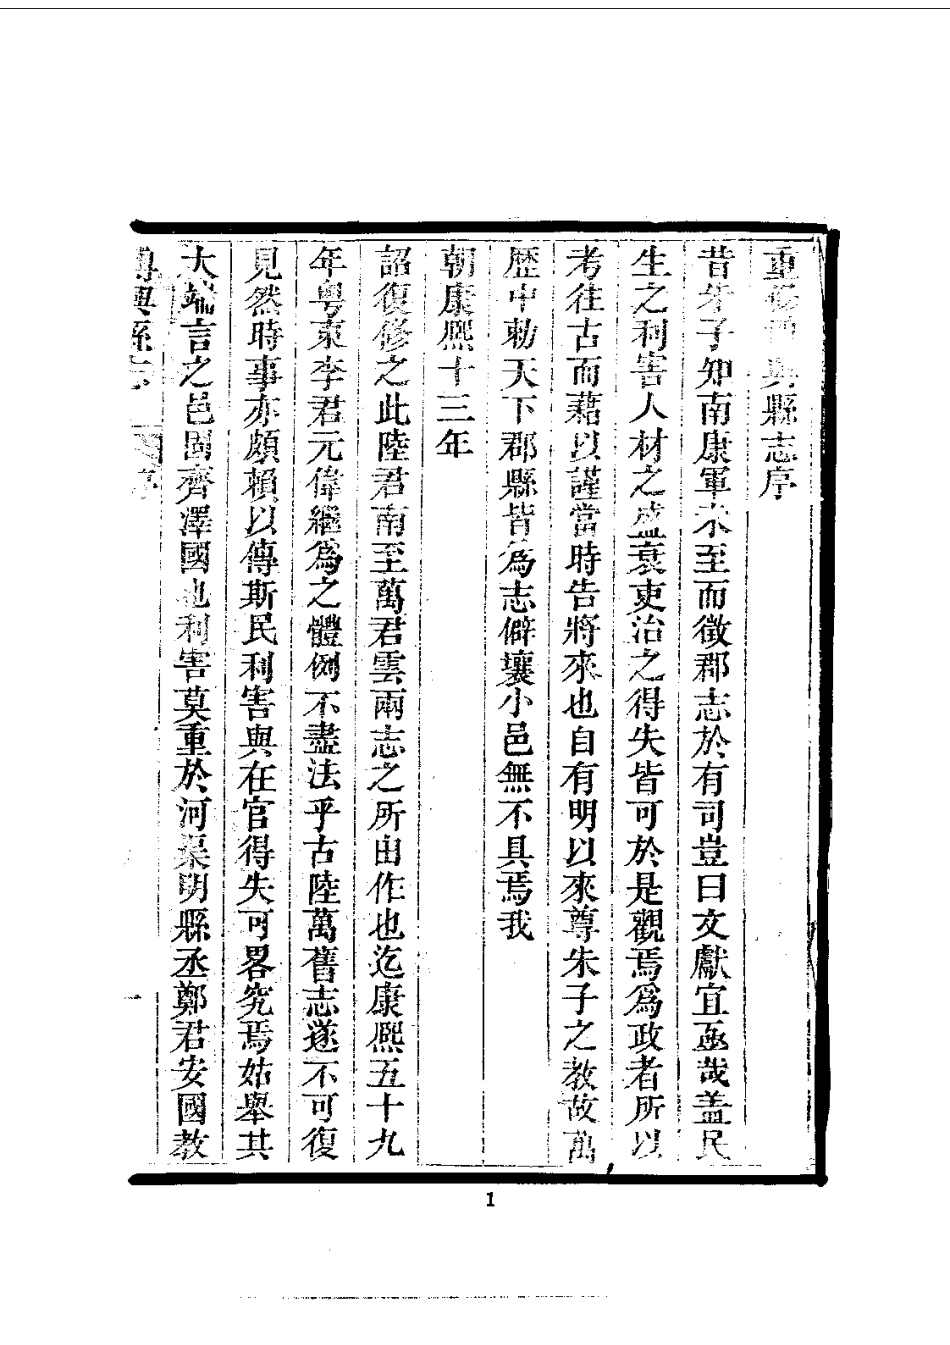 重修博興縣志序
昔朱子知南康軍未至而徵郡志於有司豈曰文獻宜亟哉盖民
生之利害人材之盛衰吏治之得失皆可於是觀焉為政者所以
考往古而藉以謹當時告將來也自有明以來尊朱子之教故萬
歷中勅天下郡縣皆為志僻壤小邑無不具焉我
朝康熙十三年
詔復修之此陸君南至萬君雲兩志之所由作也迄康熙五十九
年粤東李君元偉繼為之體例不盡法乎古陸萬舊志遂不可復
見然時事亦頗賴以傳斯民利害與在官得失可畧究焉姑舉其
大端言之邑固齊澤國也利害莫重於河渠明縣丞鄭君安國教
博興縣志 序 一
1